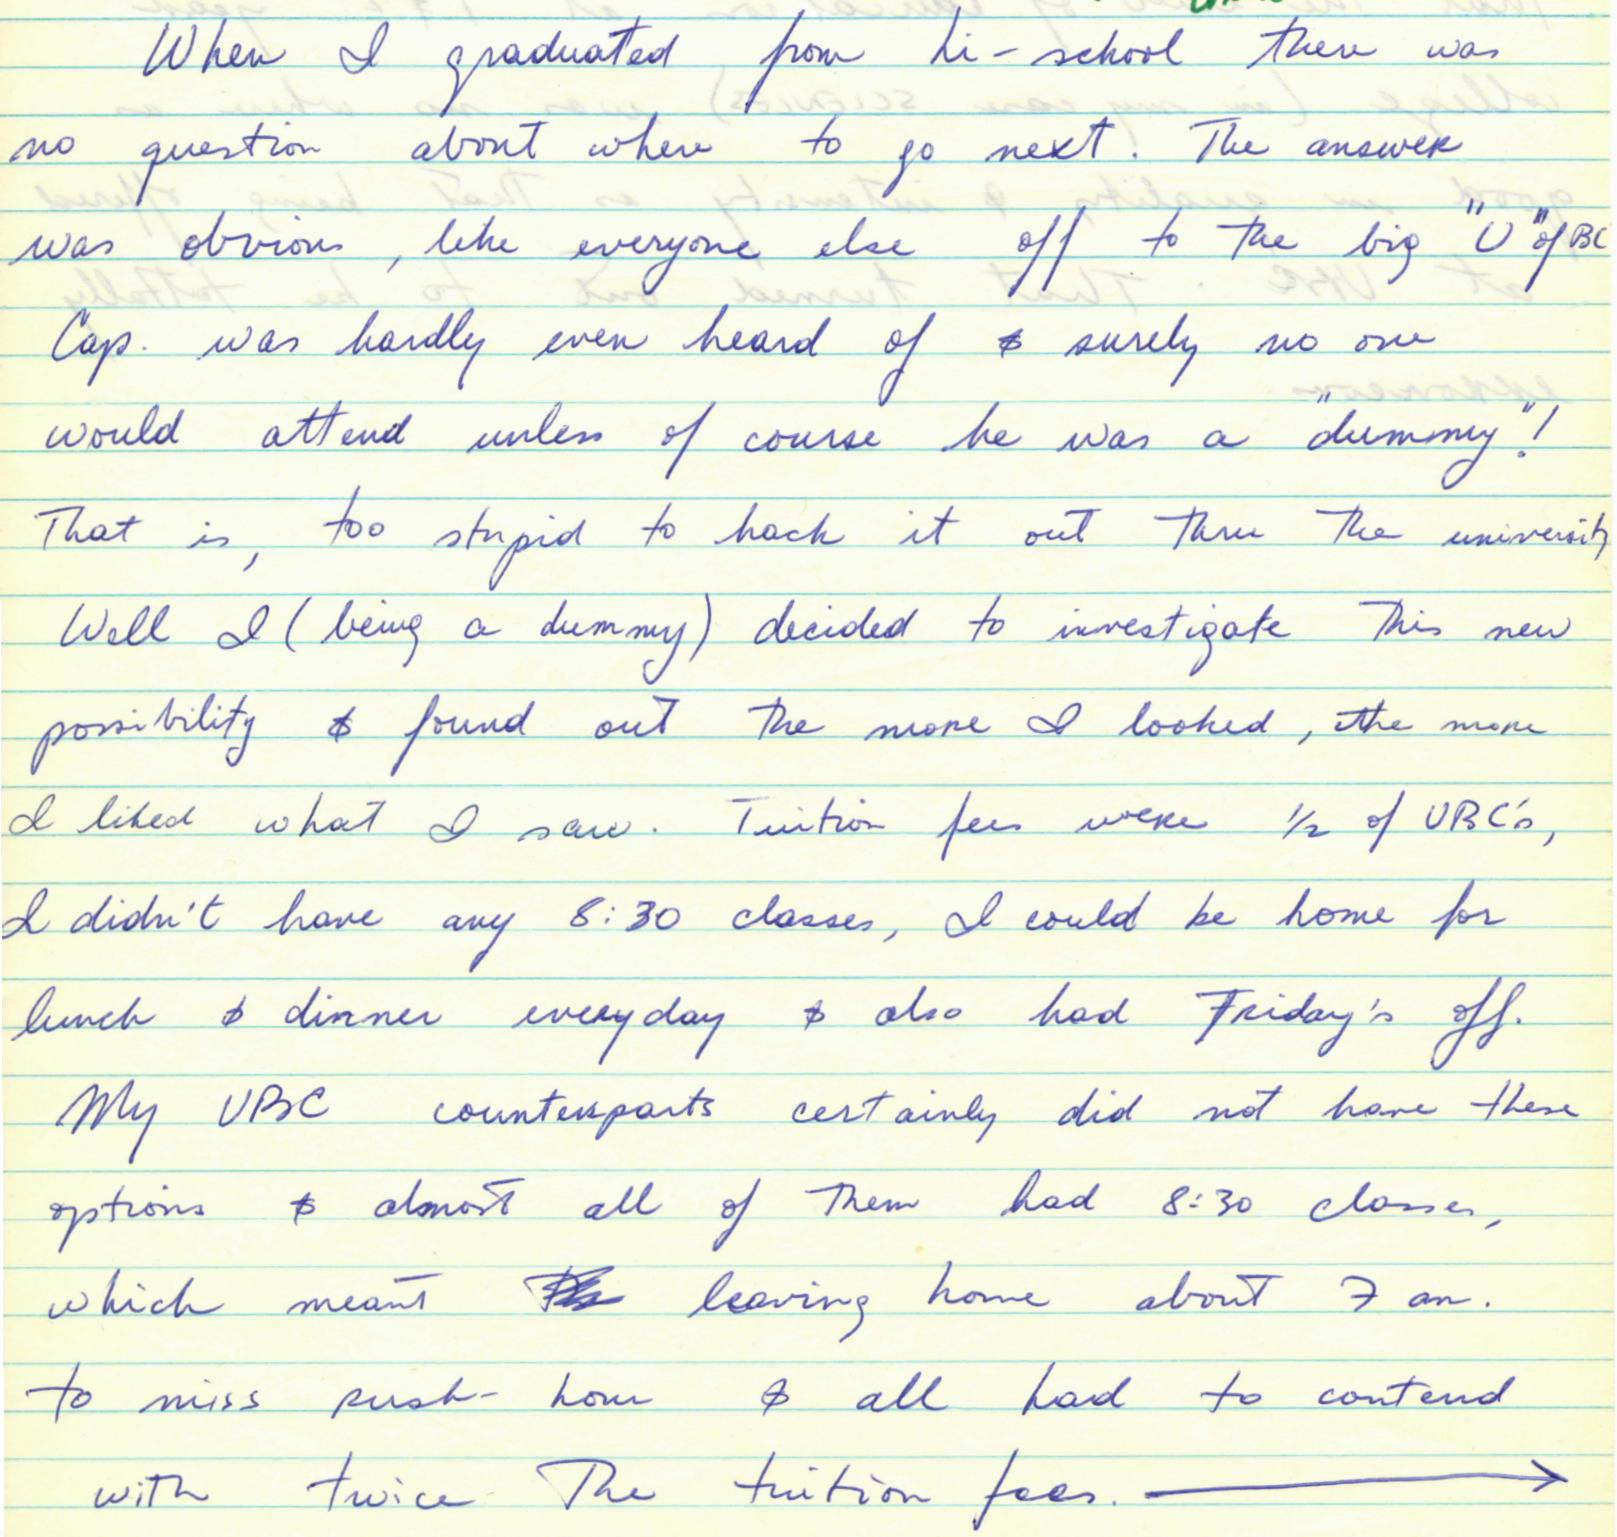 When I graduated from hi-school there was
no question about where to go next. The answer
was obvious, like everyone else off to the big "U" of BC
Cap. was hardly even heard of & surely no one
would attend unless of course he was a "dummy"!
That is, too stupid to hack it out thru the university
Well I (being a dummy) decided to investigate this new
possibility & found out the more I looked, the more
I liked what I saw. Tuition fees were 1/2 of UBC's,
I didn't have any 8:30 classes, I could be home for
lunch & dinner everyday & also had Friday's off.
My UBC counterparts certainly did not have these
options & almost all of them had 8:30 classes,
which meant leaving home about 7 am.
to miss rush-hour & all had to contend
with twice The tuition fees. →